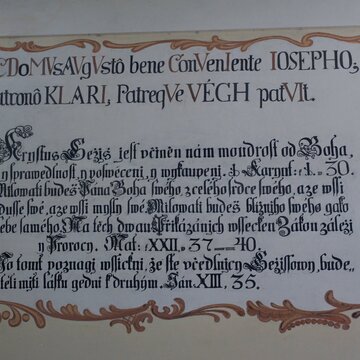 CDoMVsAVgVstô bene ConVenIente IOSEPHO,
atronô KLARI, PatreqVe VÉGH patVIt.
Krystus Gežiš jest včinèn nám mondrost od Boha,
y sprawedlnost, y poswěcení, y wykaupeni. I. Karynt: I. 30.
Milowati budeš Pána Boha swého, zcelého srdce swého, a ze wssi
dusse swé, a ze wssí mysli swé. Milowati budeš bližního swého gako
sebe samého. Na tèch dwau Prikázánich wssecken Zákon záleži
y Prorocy. Mat: XXII. 37—40.
To tout poznagi wssickni, že ste včedlnicy Gežissowy, bude-
teli míti lásku gedni k druhým. Ján. XIII, 35.